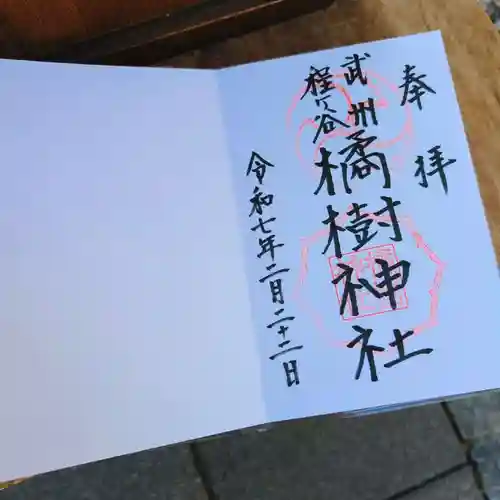 奉拝
武州
程ヶ谷
橘樹神社
令和七年二月二十二日